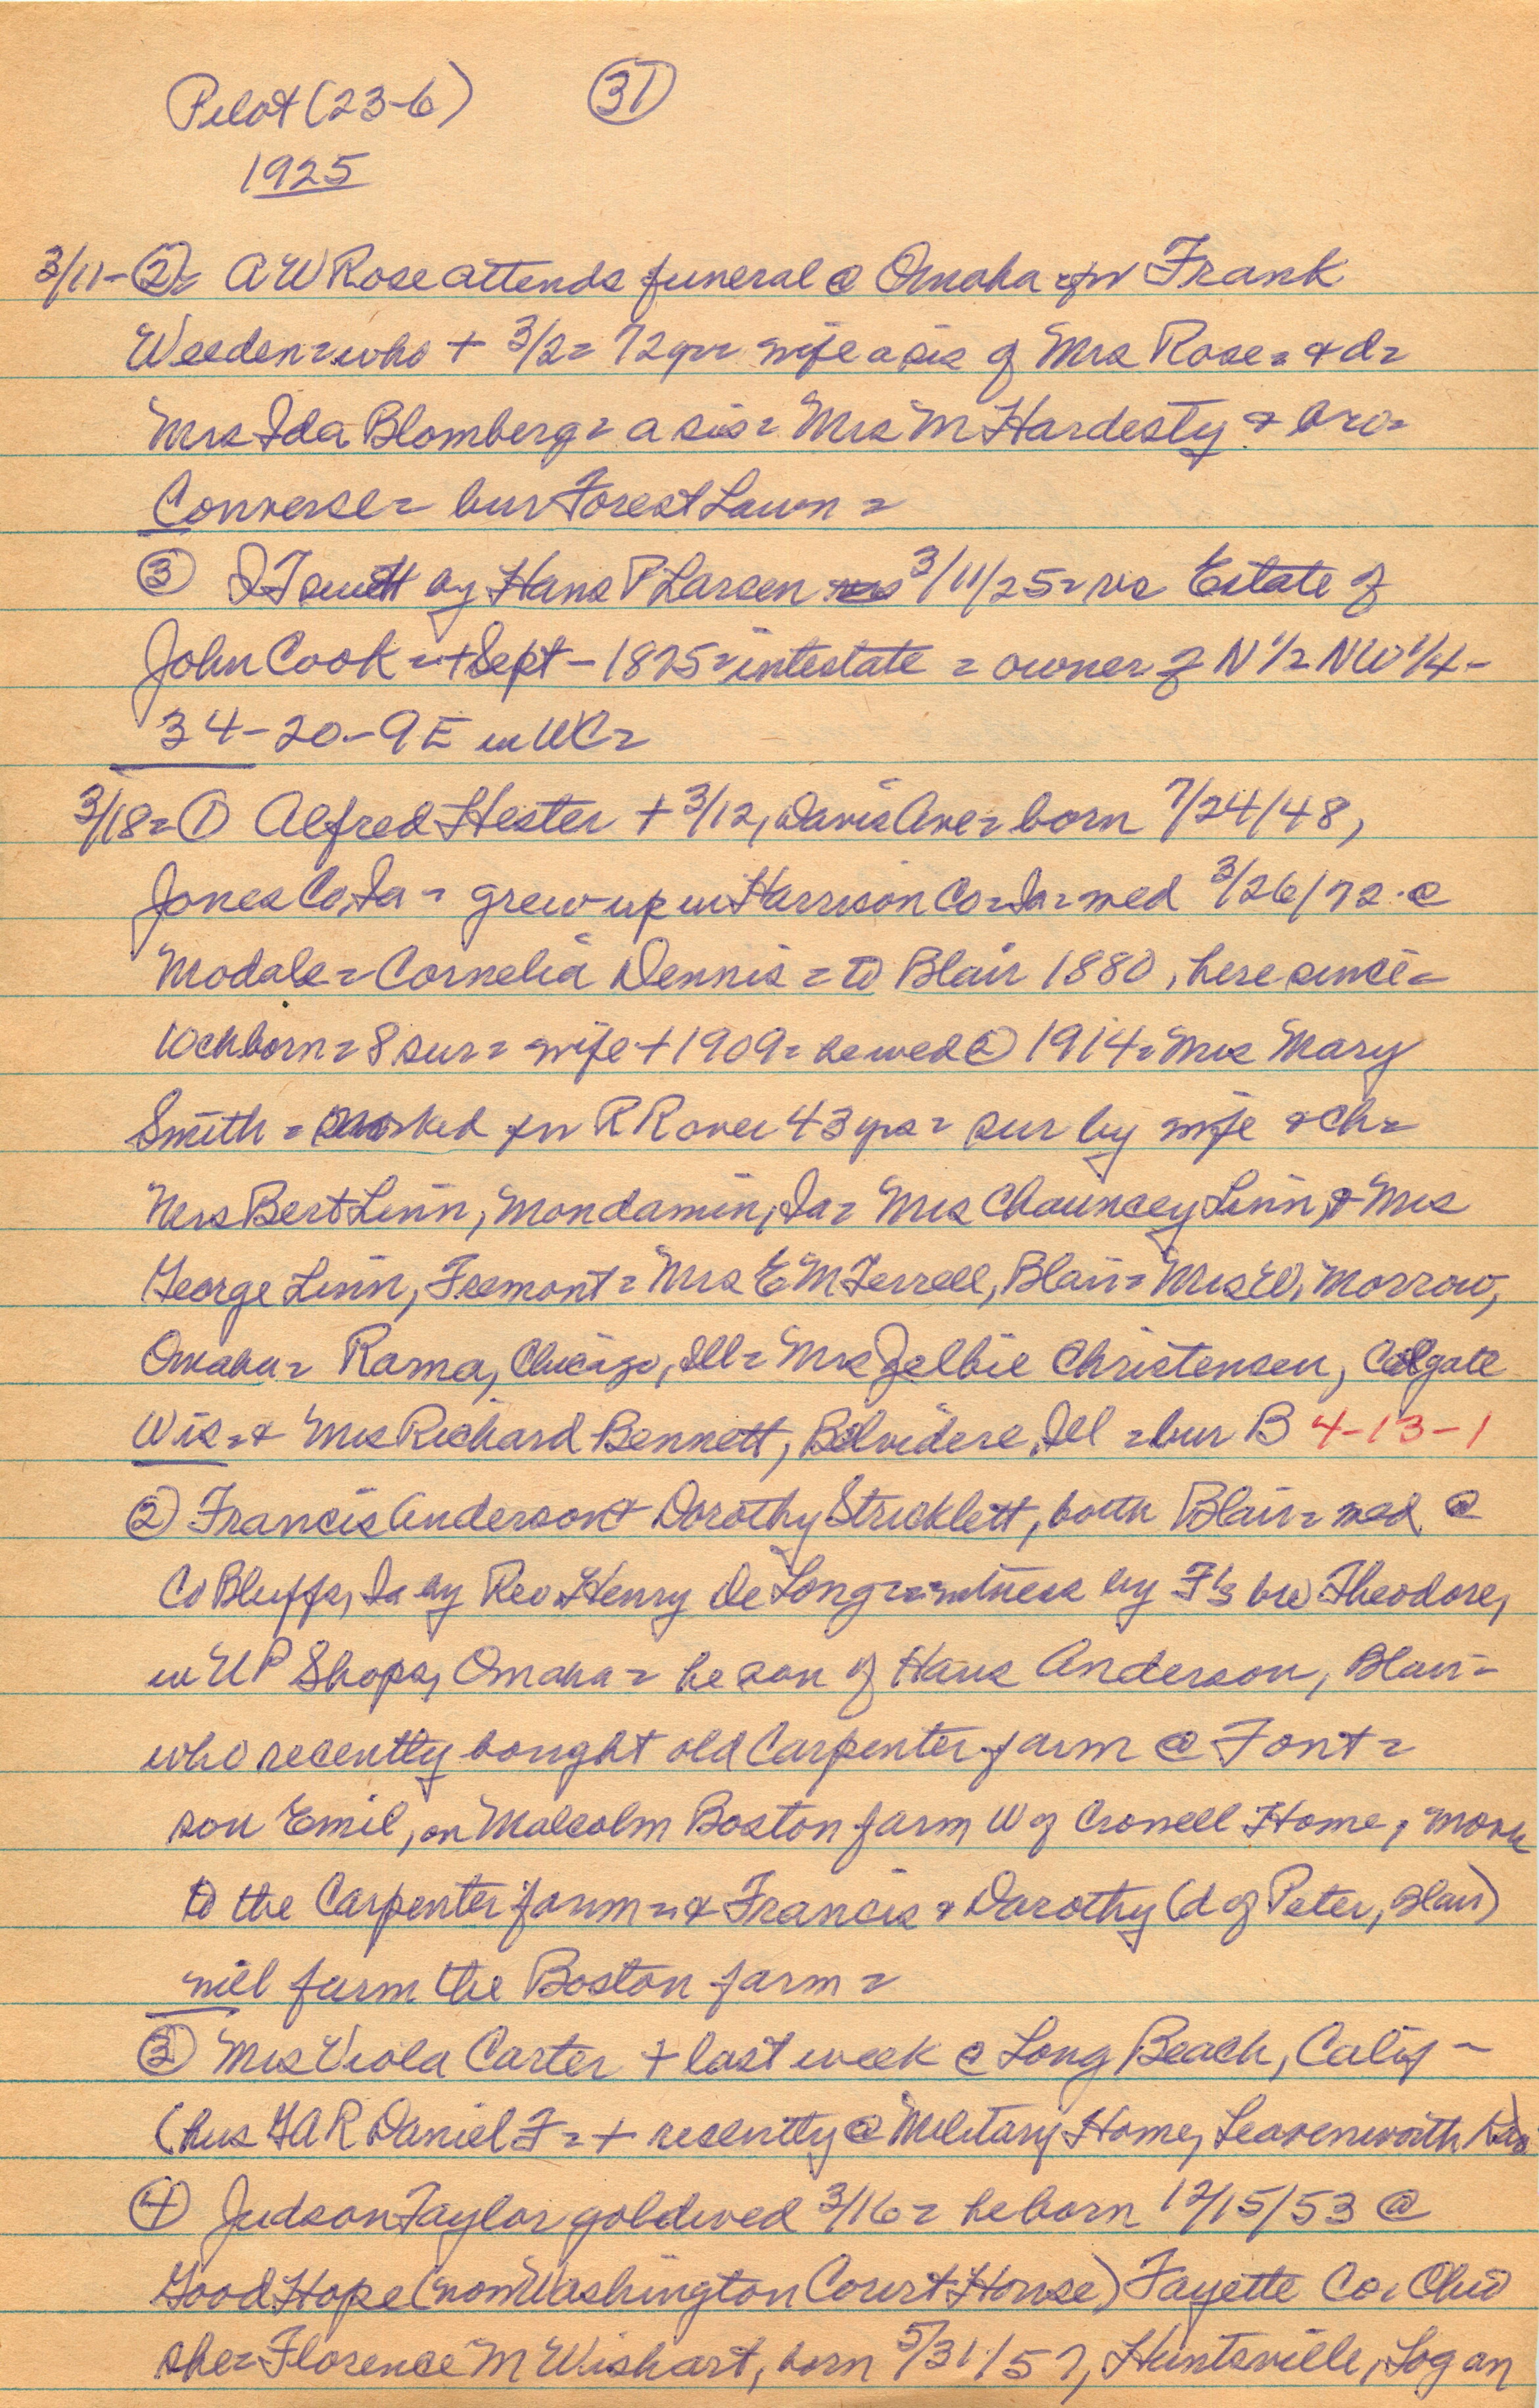 Pilot (23-6) 31
1925
3/11- 2= A W Rose attends funeral @ Omaha for Frank
Weeden = who + 3/2 = 72 yr = wife a sis of Mrs Rose = & d =
Mrs Ida Blomberg = a sis = Mrs M Hardesty & bro =
Converse = bur Forest Lawn =
3 QT suit by Hans P Larsen 3/11/25 = vs Estate of
John Cook = + Sept - 1825 = intestate = owner of N 1/2 NW 1/4 -
34-20-9E in WC =
3/18= 1 Alfred Hester + 3/12, Davis Ave = born 7/24/48,
Jones Co, Ia = grew up in Harrison Co = Ia = wed 3/26/72 @
Modale = Cornelia Dennis = to Blair 1880, here since =
10 ch born = 8 sur = wife + 1909 = he wed 2 1914 = Mrs Mary
Smith = worked for RR over 43 yrs = sur by wife & ch =
Mrs Bert Linn, Mondamin, Ia = Mrs Chauncey Linn, & Mrs
George Linn, Fremont = Mrs E M Ferrell, Blair = Mrs W. Morrow,
Omaha = Rama, Chicago, Ill = Mrs Christensen, Colgate
Wis = & Mrs Richard Bennett, Belvidere, Ill = bur B 4-13-1
2 Francis Anderson & Dorothy Stricklett, both Blair = wed @
Co Bluffs, Ia by Rev Henry De Long = witness by F's bro Theodore,
in UP Shops, Omaha = he son of Hans Anderson, Blair =
who recently bought old Carpenter farm @ Font =
son Emil, on Malcolm Boston farm W of Crowell Home, move
to the Carpenter farm = & Francis & Dorothy (d of Peter, Blair)
will farm the Boston farm =
3 Mrs Viola Carter + last week @ Long Beach, Calif -
(hus GAR Daniel F = + recently @ Military Home, Leavenworth Kas)
4 Judson Taylor gold wed 3/16 = he born 12/15/53 @
Good Hope (now Washington Court House) Fayette Co, Ohio
she = Florence M Wishart, born 5/31/57, Huntsville, Logan